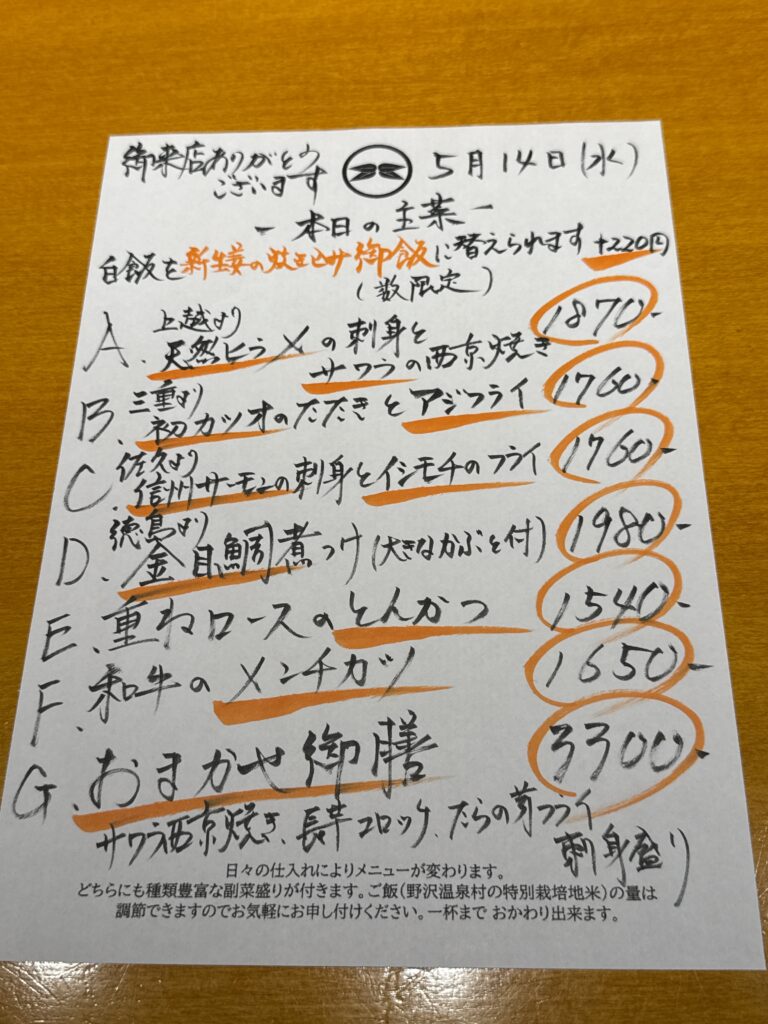 御来店ありがとう
ございます
5月14日(水)
-本日の主菜-
白飯を新生姜の炊き込み御飯に替えられます +220円
(数限定)
A. 上越より
天然ヒラメの刺身と
サワラの西京焼き
1870-
B. 三重より
初カツオのたたきとアジフライ
1760-
C. 佐久より
信州サーモンの刺身とイシモチのフライ
1760-
D. 徳島より
金目鯛煮つけ(大きなかぶと付)
1980-
E. 重ねロースのとんかつ
1540-
F. 和牛のメンチカツ
1650-
G. おまかせ御膳
3300-
サワラ西京焼き、長芋コロッケ、たらの芽フライ
刺身盛り
日々の仕入れによりメニューが変わります。
どちらにも種類豊富な副菜盛りが付きます。ご飯(野沢温泉村の特別栽培地米)の量は
調節できますのでお気軽にお申し付けください。一杯まで おかわり出来ます。